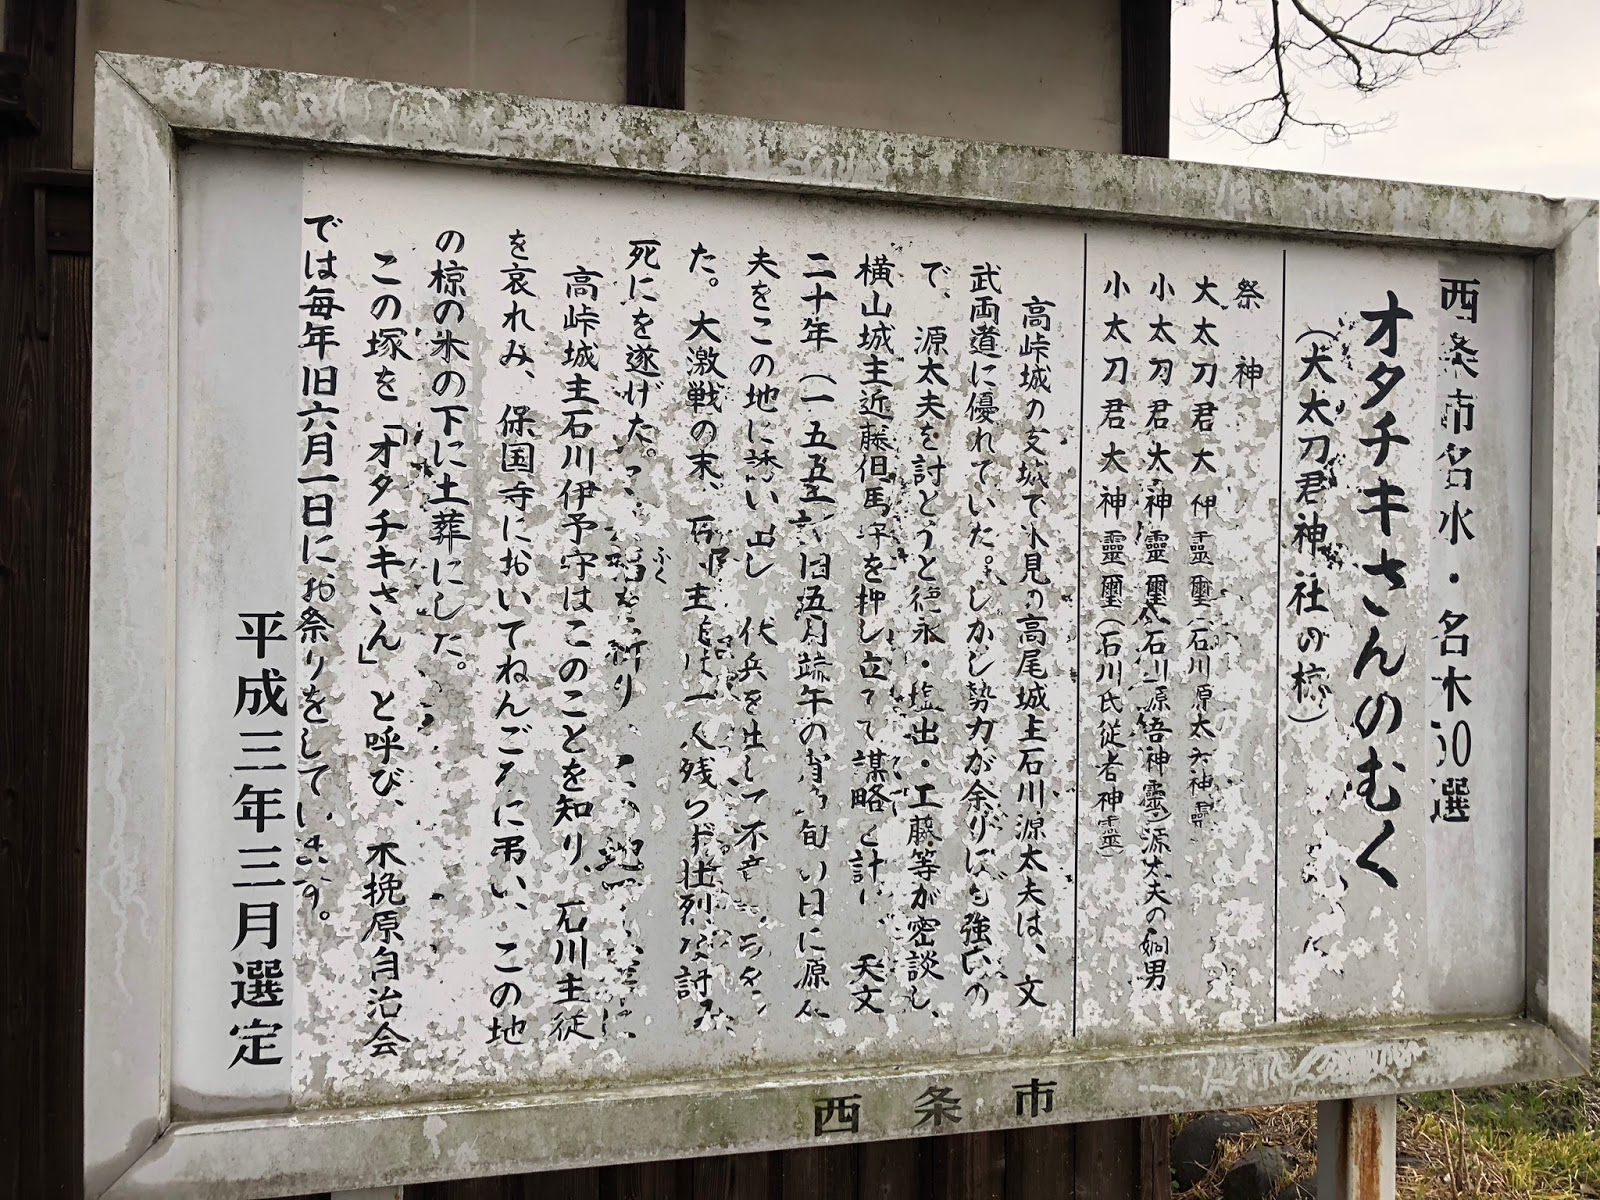 西条市名水・名木50選
オタチキさんのむく
(大太刀君神社の椋)
祭神
大太刀君大神霊璽(石川源太夫神霊)
小太刀君大神霊璽(石川源吾神霊)源太夫の嫡男
小太刀君大神霊璽(石川氏従者神霊)
高峠城の支城で氷見の高尾城主石川源太夫は、文
武両道に優れていた。しかし勢力が余りにも強いの
で、源太夫を討とうと徳永・塩出・工藤等が密談し、
横山城主近藤但馬守を押し立てて謀略を計り 天文
二十年(一五五 旧五月端午の 旬い日に源太
夫をこの地に誘い出し 伏兵を出して不意
た。大激戦の末 主 は一人残らず壮烈な討
死にを遂げた。 福を祈り この地
高峠城主石川伊予守はこのことを知り、石川主従
を哀れみ、保国寺においてねんごろに弔い、この地
の椋の木の下に土葬にした。
この塚を「オタチキさん」と呼び、木挽原自治会
では毎年旧六月一日にお祭りをしています。
平成三年三月選定
西条市